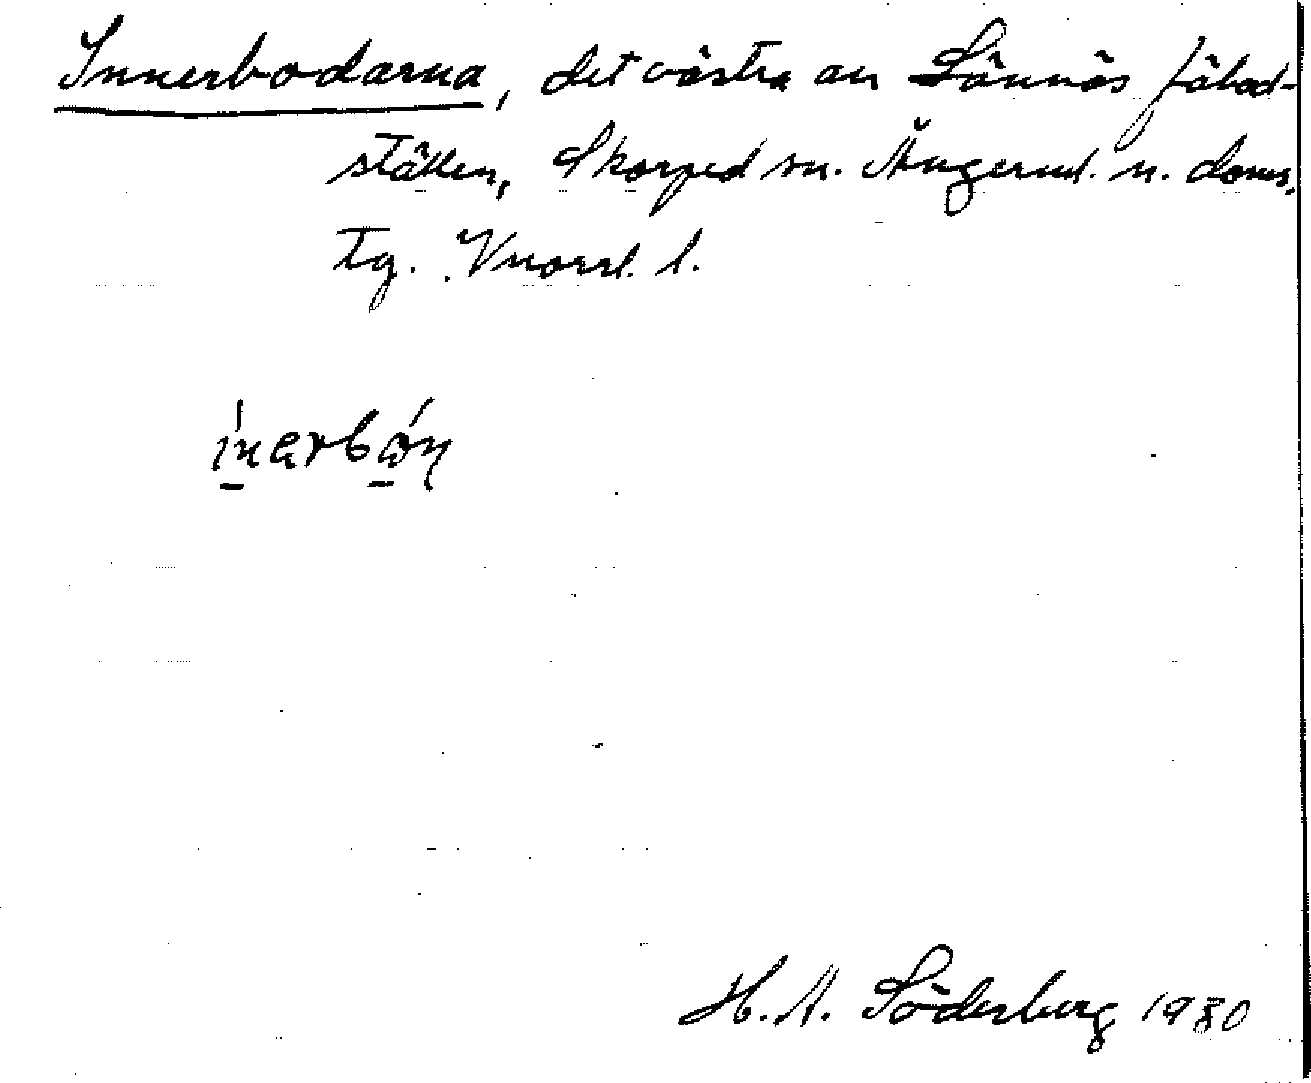 Innerbodarna, det västra av Sännäs fäbod-
ställen, Skorped sn. Ångerml. n. doms.
tg. Vnorrl. l.
H. A. Söderberg 1930